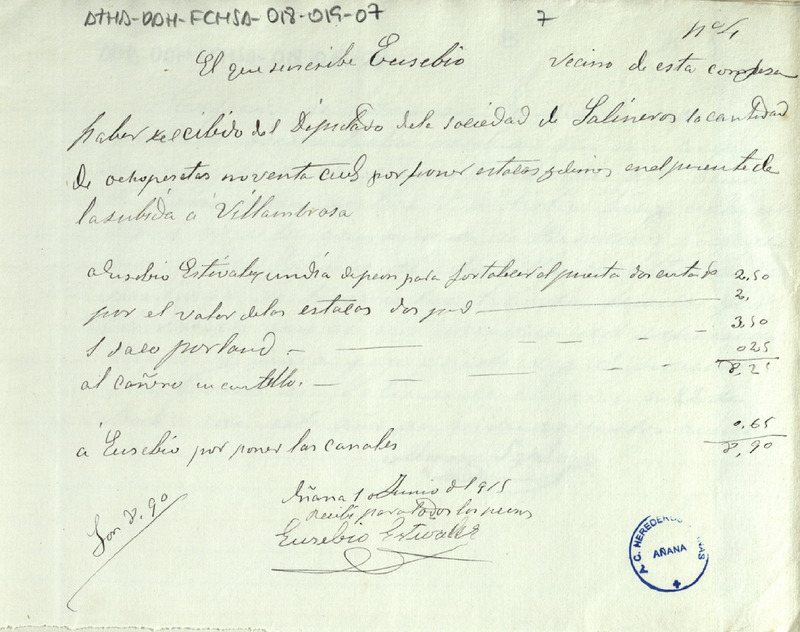 ATHA-DAH-FCHSA-018-019-07
7
nº 4
El que suscribe Eusebio vecino de esta confiesa
haber recibido del Diputado de la Sociedad de Salineros la cantidad
de ocho pesetas noventa por poner estacas en el puente de
la subida á Villambrosa
a Eusebio Estivalez un dia de peon para fortalecer al puente dos cuenta 2,50
por el valor de las estacas dos 2,
1 saco porland. 3,50
al cañero un 025
8,25
á Eusebio por poner las canales 0,65
8,90
Añana 1º Junio de 1915
Recibí para todos los
Eusebio Estivalez
Son 8,90
C. HEREDEROS
AÑANA